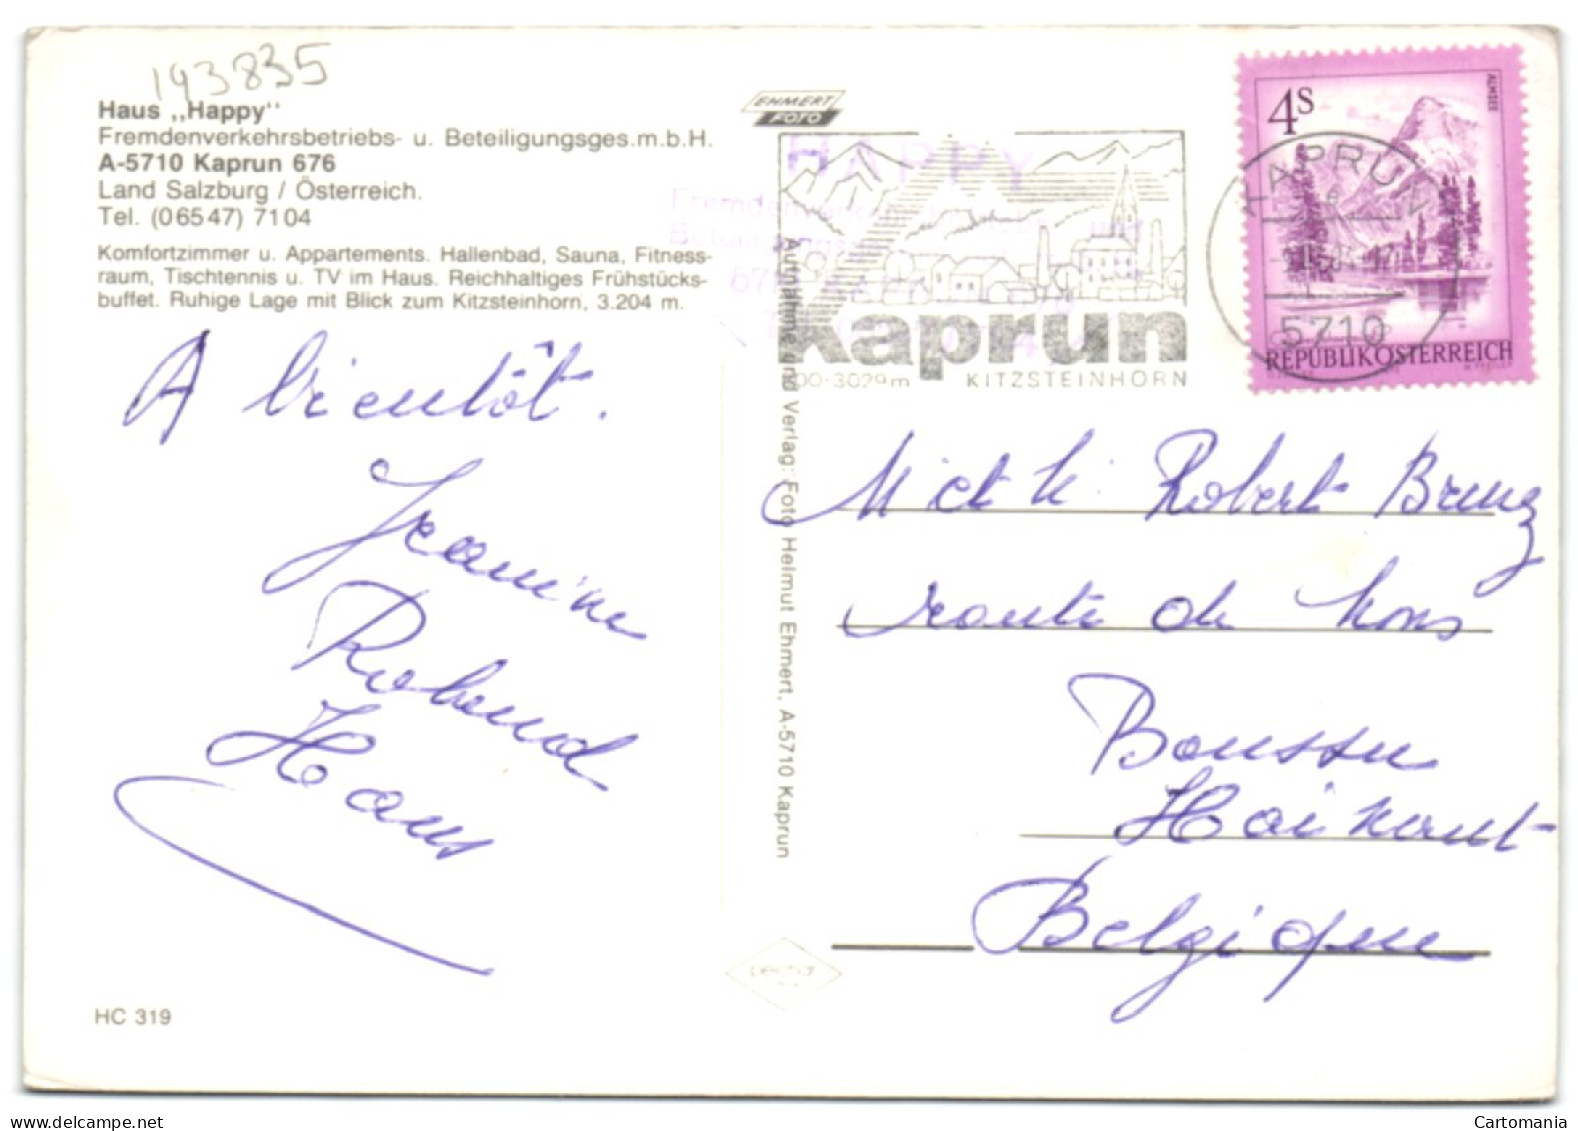 193835
Haus „Happy"
Fremdenverkehrsbetriebs- u. Beteiligungsges.m.b.H.
A-5710 Kaprun 676
Land Salzburg / Österreich.
Tel. (06547) 7104
Komfortzimmer u. Appartements. Hallenbad, Sauna, Fitness-
raum, Tischtennis u. TV im Haus. Reichhaltiges Frühstücks-
buffet. Ruhige Lage mit Blick zum Kitzsteinhorn, 3.204 m.
A bientôt.
Jeanine
Roland
Hans
HC 319
EHMERT
FOTO
HAPPY
Kaprun
00-3029m KITZSTEINHORN
Aufnahme und Verlag: Foto Helmut Ehmert, A-5710 Kaprun
4S
ALMSEE
KAPRUN
5710
REPUBLIK ÖSTERREICH
M et Robert Breuz
route de Mons
Boussu
Hainaut
Belgique
Cartomania